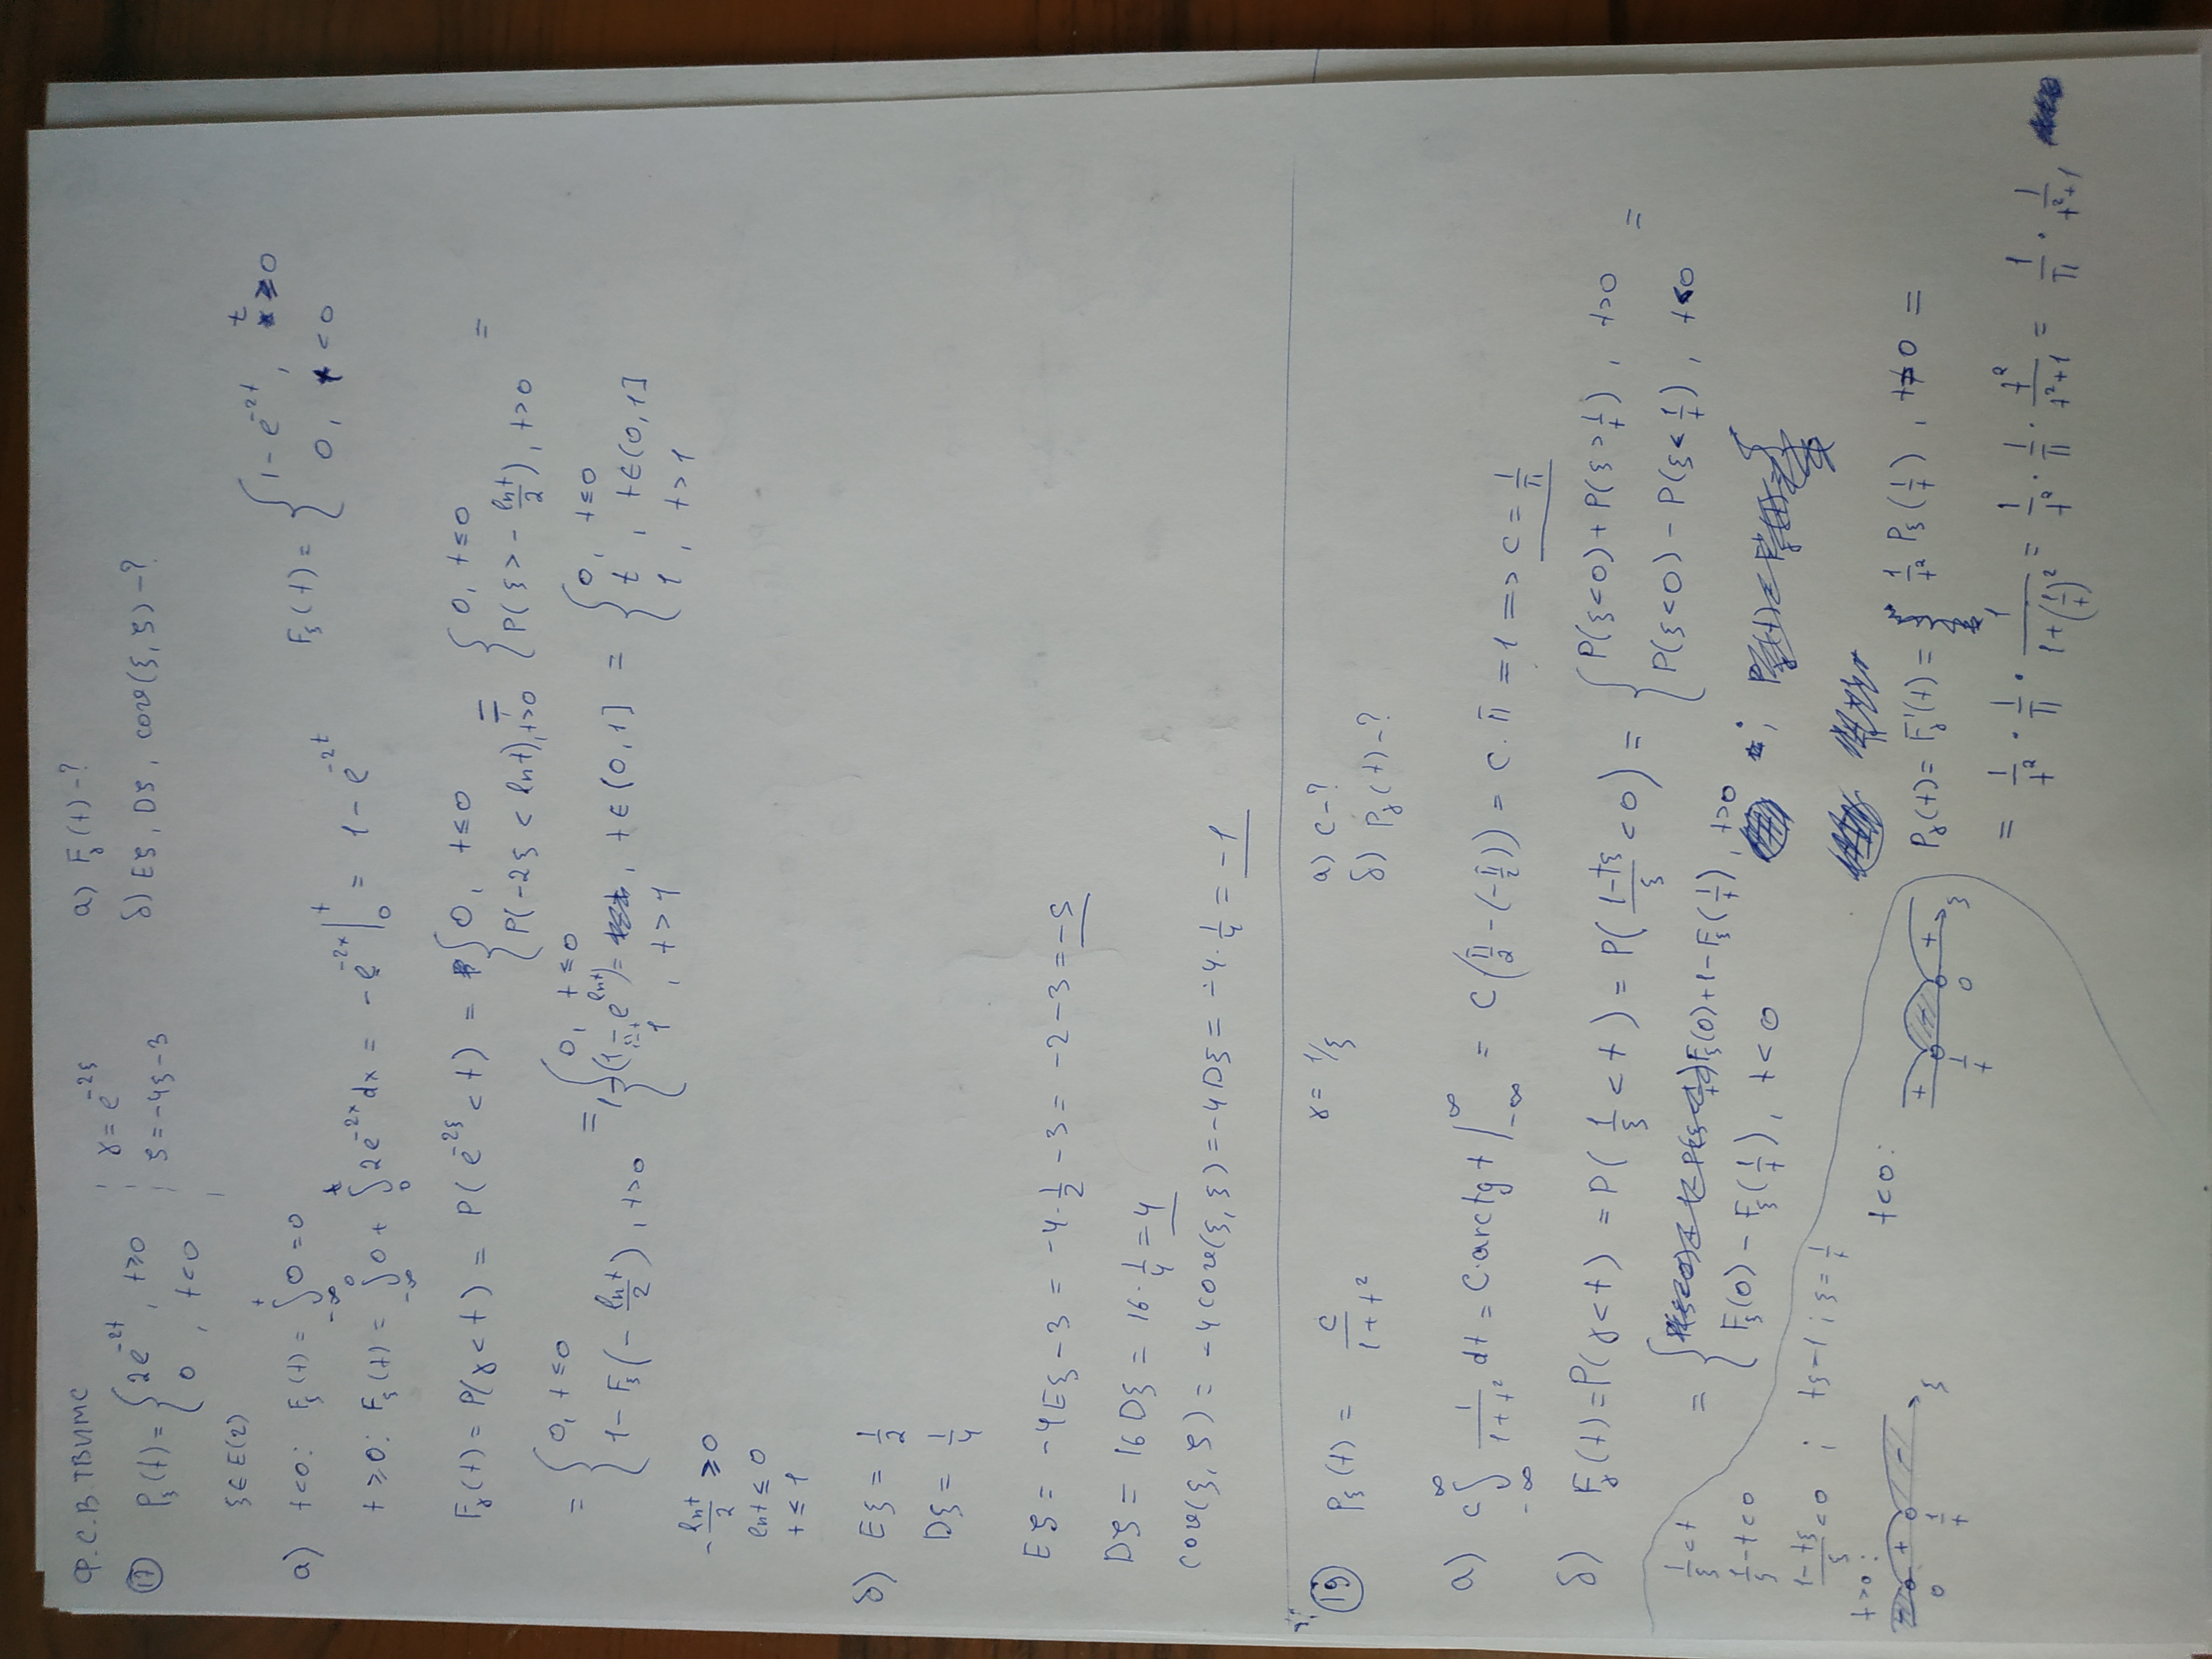 Ф.С.В. ТВИМС
(17) P_ξ(t) = { 2e^{-2t}, t≥0 ; 0, t<0 | γ = e^{-2ξ} ; ζ = -4ξ-3 | а) F_γ(t) - ? ; б) Eζ, Dζ, cov(ξ, ζ) - ?
ξ ∈ E(2)
а) t<0: F_ξ(t) = ∫_{-∞}^{t} 0 = 0
t≥0: F_ξ(t) = ∫_{-∞}^{0} 0 + ∫_{0}^{t} 2e^{-2x}dx = -e^{-2x}|_{0}^{t} = 1 - e^{-2t}
F_ξ(t) = { 1 - e^{-2t}, t≥0 ; 0, t<0
F_γ(t) = P(γ<t) = P(e^{-2ξ}<t) = { 0, t≤0 ; P(-2ξ < lnt), t>0 = { 0, t≤0 ; P(ξ > - lnt/2), t>0 =
= { 0, t≤0 ; 1 - F_ξ(- lnt/2), t>0 = { 0, t≤0 ; 1-(1-e^{lnt})=, t∈(0,1] ; 1, t>1 = { 0, t≤0 ; t, t∈(0,1] ; 1, t>1
- lnt/2 ≥ 0
lnt ≤ 0
t ≤ 1
б) Eξ = 1/2
Dξ = 1/4
Eζ = -4Eξ - 3 = -4·1/2 - 3 = -2-3 = -5
Dζ = 16Dξ = 16·1/4 = 4
cov(ξ, ζ) = -4cov(ξ, ξ) = -4Dξ = -4·1/4 = -1
(19) P_ξ(t) = c/(1+t²) γ = 1/ξ а) c-? ; б) P_γ(t)-?
а) c∫_{-∞}^{∞} 1/(1+t²) dt = C·arctg t|_{-∞}^{∞} = C(π/2 - (-π/2)) = C·π = 1 => c = 1/π
б) F_γ(t) = P(γ<t) = P(1/ξ < t) = P((1-tξ)/ξ < 0) = { P(ξ<0) + P(ξ > 1/t), t>0 ; P(ξ<0) - P(ξ < 1/t), t<0 =
= { F_ξ(0) + 1 - F_ξ(1/t), t>0 ; F_ξ(0) - F_ξ(1/t), t<0 ;
1/ξ < t
1/ξ - t < 0
(1-tξ)/ξ < 0 ; tξ-1 ; ξ = 1/t
t>0: - + - 0 1/t ξ
t<0: + - + 1/t 0 ξ
P_γ(t) = F'_γ(t) = 1/t² P_ξ(1/t), t≠0 =
= 1/t² · 1/π · 1/(1+(1/t)²) = 1/t² · 1/π · t²/(t²+1) = 1/π · 1/(t²+1)